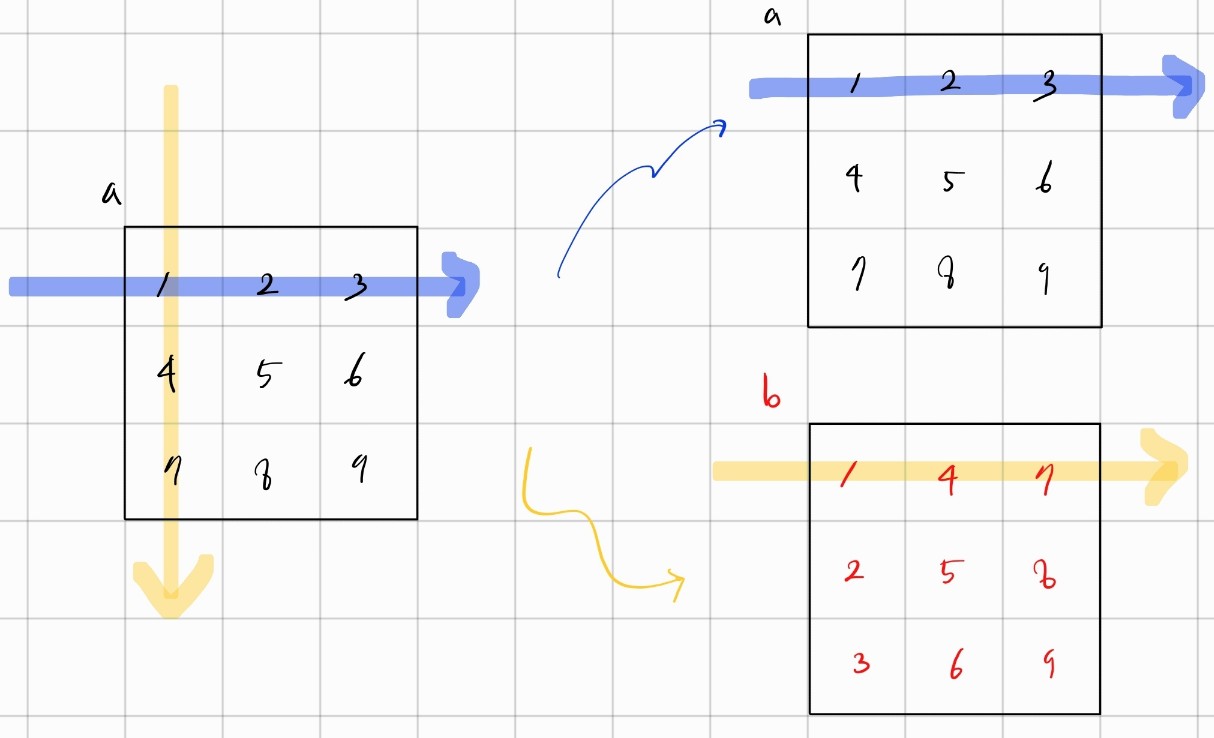 a
1 2 3
4 5 6
7 8 9
a
1 2 3
4 5 6
7 8 9
b
1 4 7
2 5 8
3 6 9